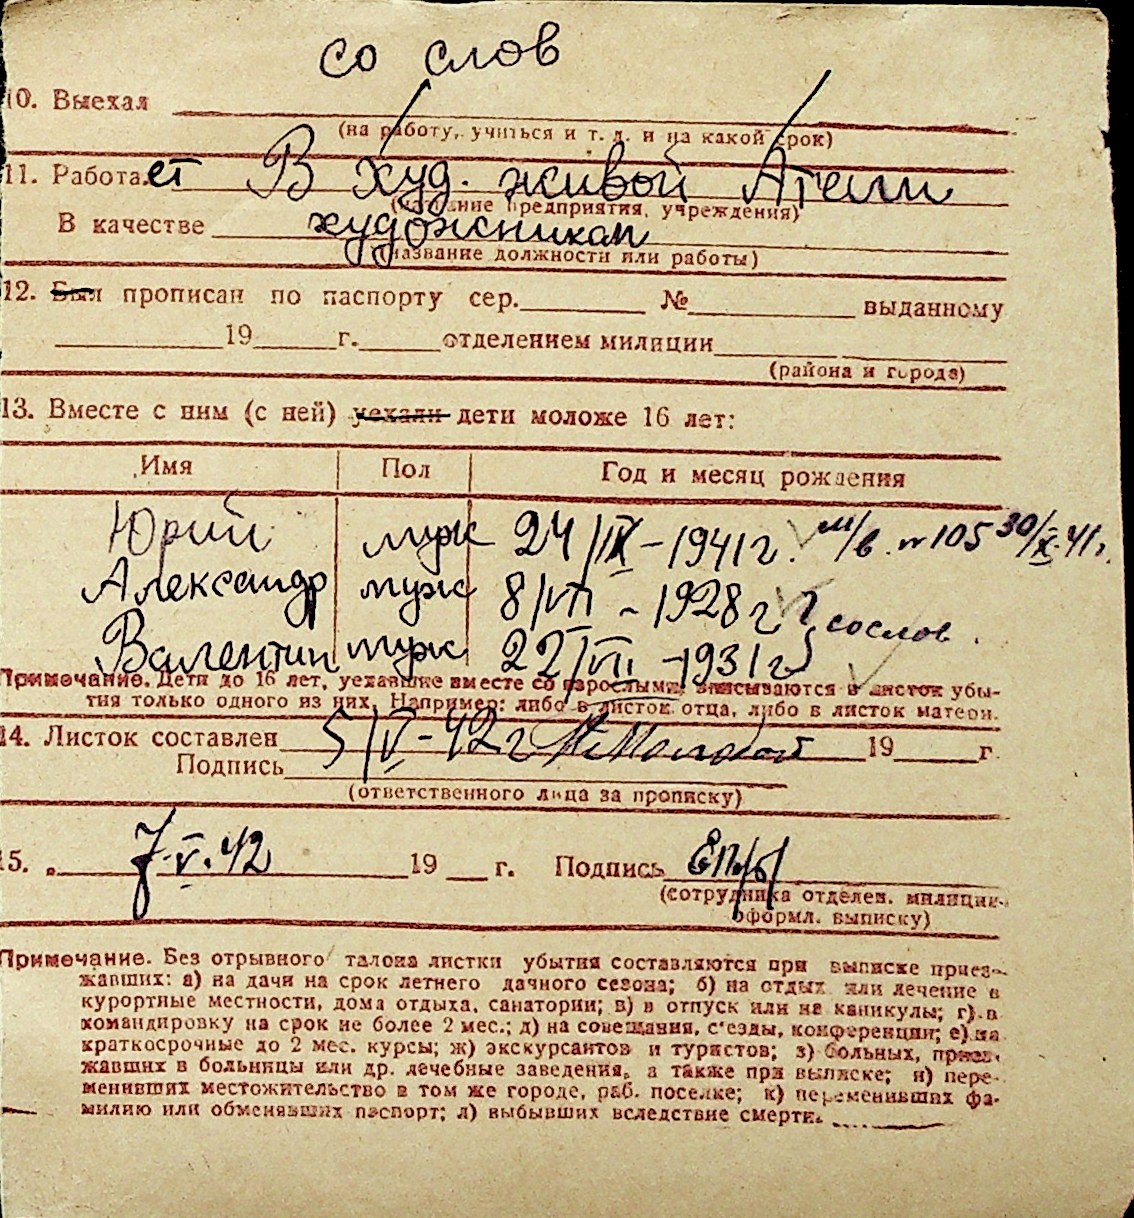 со слов
10. Выехал
(на работу, учиться и т. д. и на какой срок)
11. Работает В худ. живой Ателли
(название предприятия, учреждения)
В качестве художником
(название должности или работы)
12. Был прописан по паспорту сер. № выданному
19 г. отделением милиции
(района и города)
13. Вместе с ним (с ней) уехали дети моложе 16 лет:
Имя Пол Год и месяц рождения
Юрий муж 24/IX-1941г. м/в. № 105 30/X-41г.
Александр муж 8/VII - 1928г
со слов
Валентин муж 22/VII -1931г
Примечание. Дети до 16 лет, уехавшие вместе со взрослыми, вписываются в листок убы-
тия только одного из них. Например: либо в листок отца, либо в листок матери.
14. Листок составлен 5/V-42г 19 г.
Подпись
(ответственного лица за прописку)
15. „ 7.V.42 19 г. Подпись
(сотрудника отделен. милиции
оформл. выписку)
Примечание. Без отрывного талона листки убытия составляются при выписке приез-
жавших: а) на дачи на срок летнего дачного сезона; б) на отдых или лечение в
курортные местности, дома отдыха, санатории; в) в отпуск или на каникулы; г) в
командировку на срок не более 2 мес.; д) на совещания, с'езды, конференции; е) на
краткосрочные до 2 мес. курсы; ж) экскурсантов и туристов; з) больных, приез-
жавших в больницы или др. лечебные заведения, а также при выписке; и) пере-
менивших местожительство в том же городе, раб. поселке; к) переменивших фа-
милию или обменявших паспорт; л) выбывших вследствие смерти.